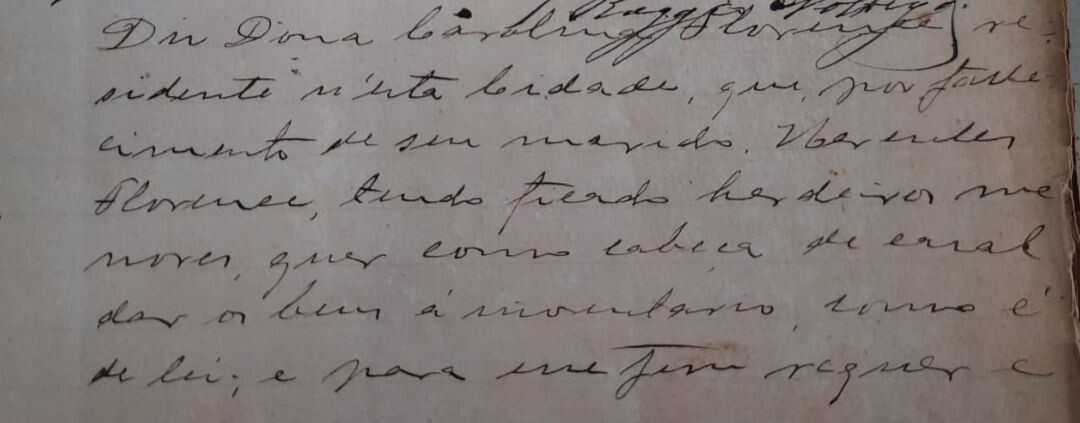 Diz Dona Carolina Florence, re-
sidente n'esta Cidade, que, por falle-
cimento de seu marido, Hercules
Florence, tendo ficado herdeiros me
nores, quer como cabeça de casal
dar os bens á inventario, como é
de lei; e para esse fim requer e